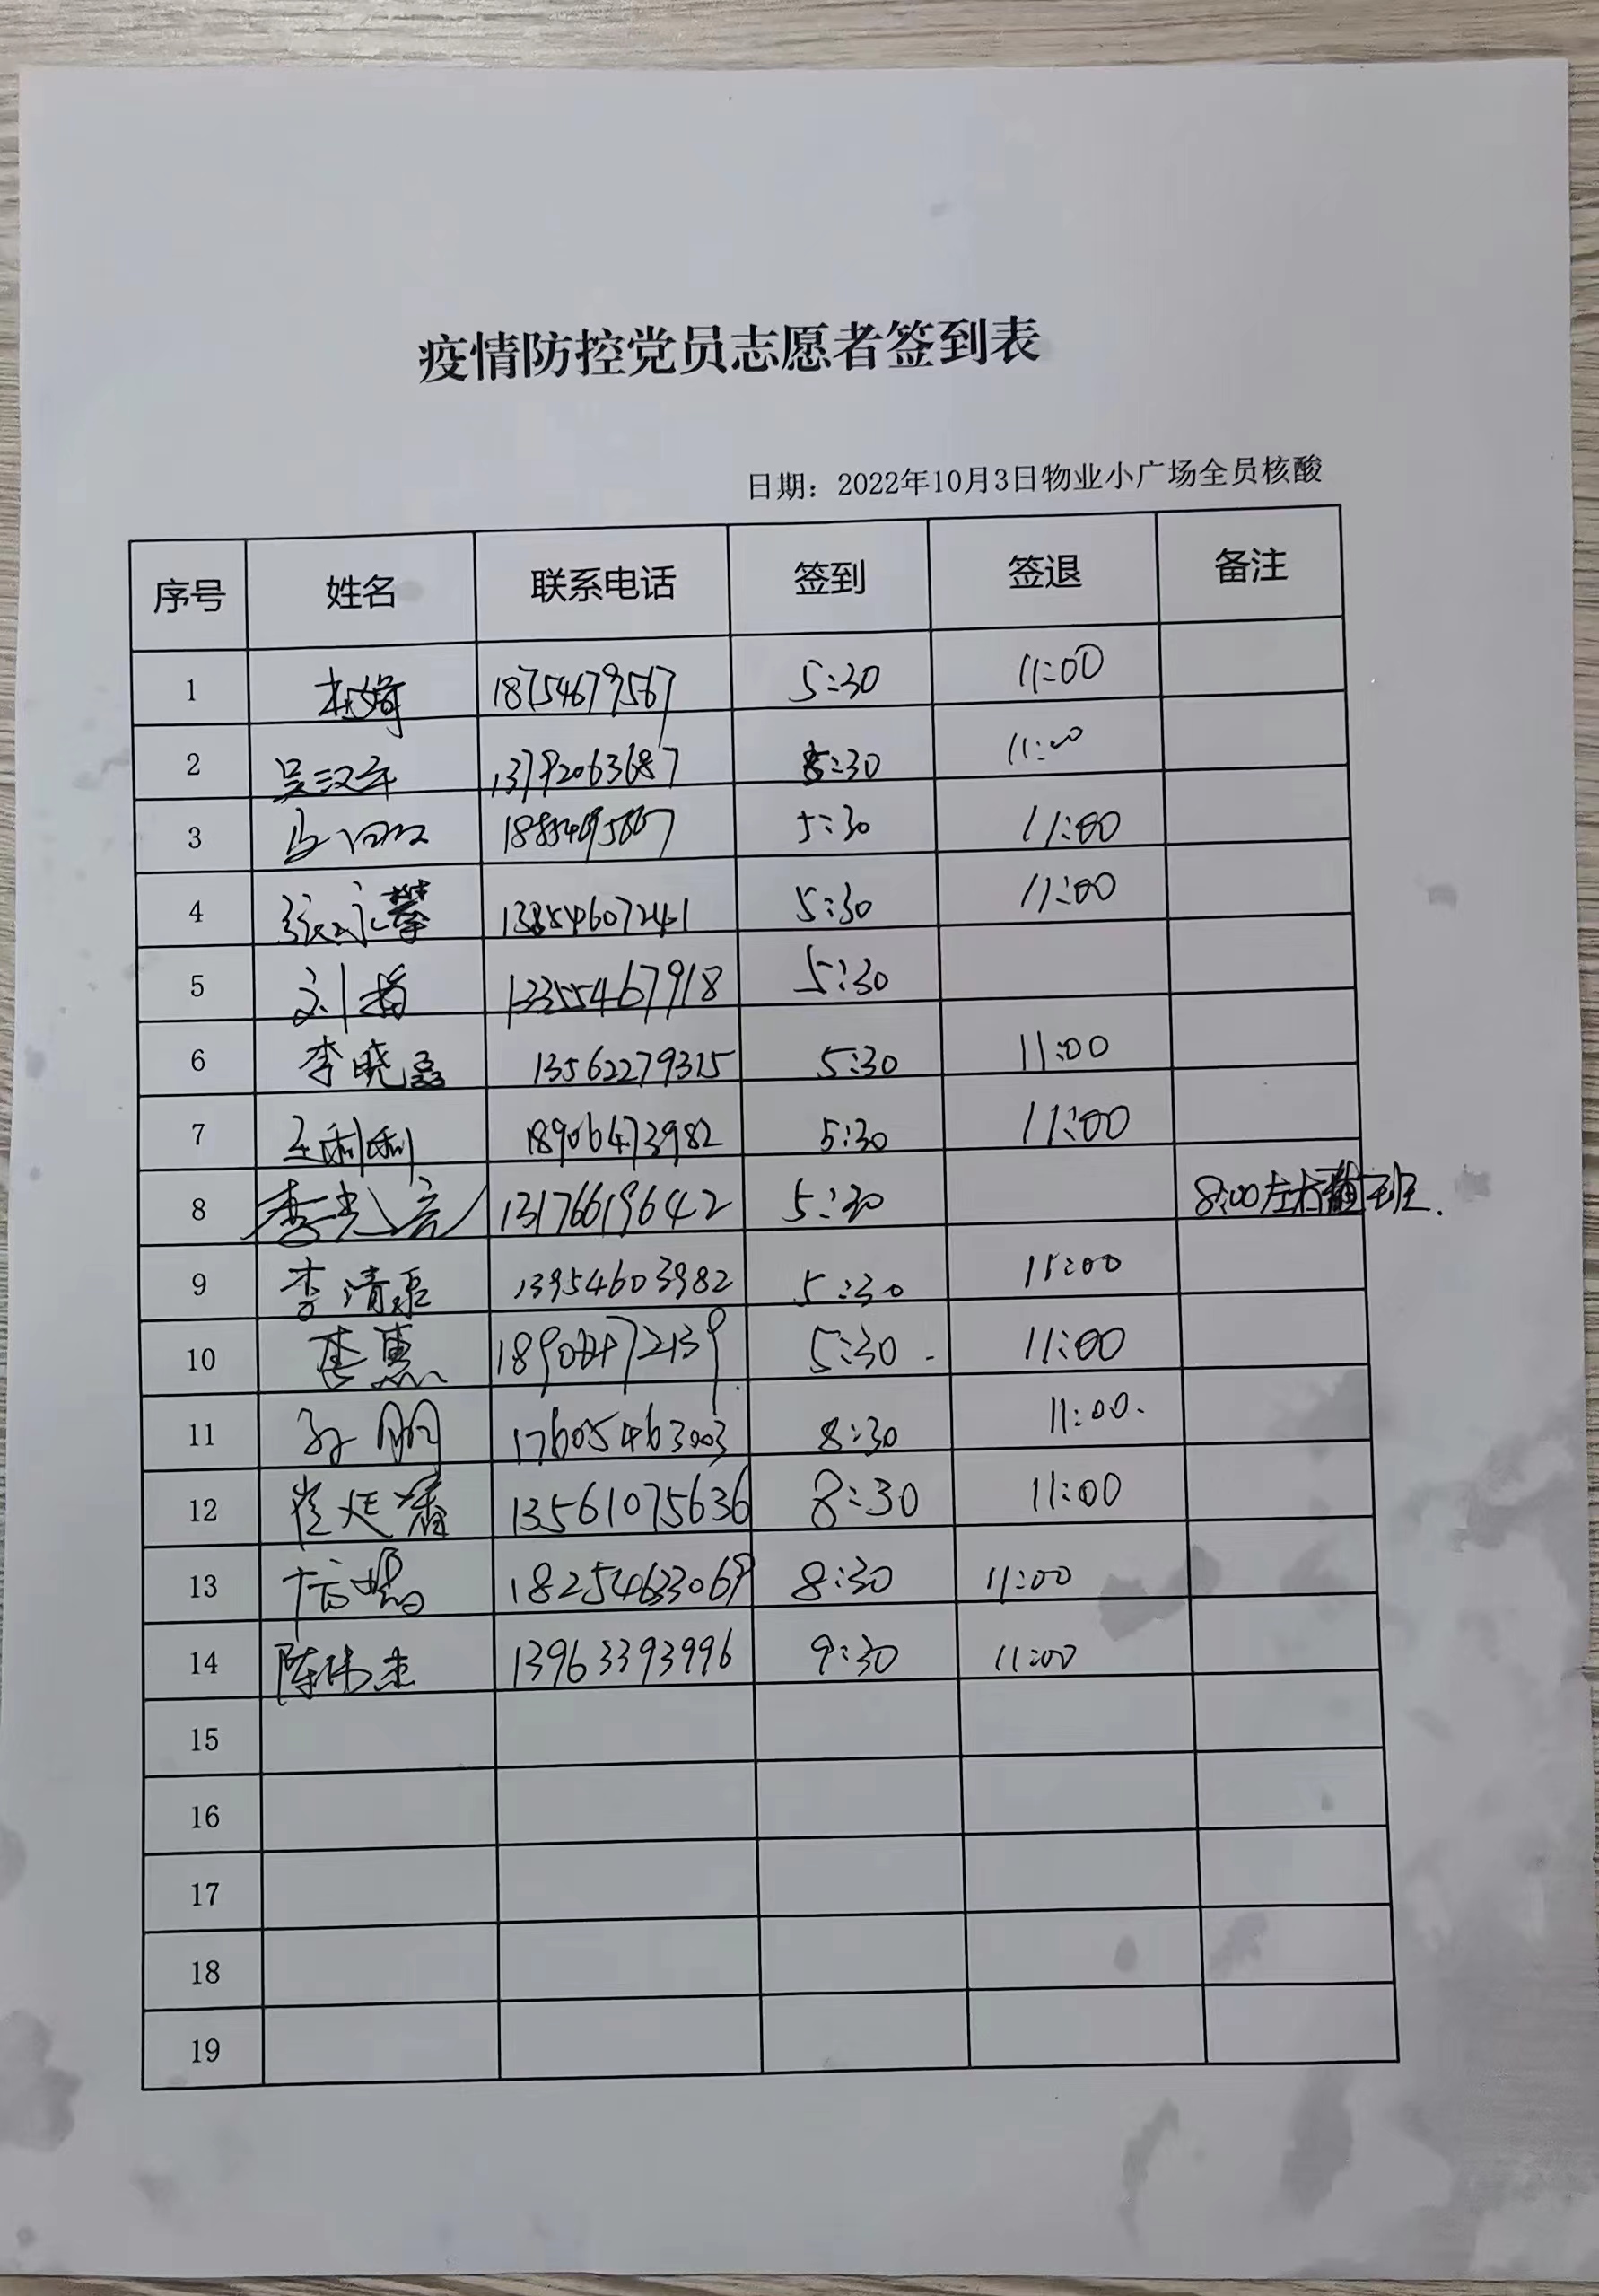 疫情防控党员志愿者签到表
日期：2022年10月3日物业小广场全员核酸
序号 姓名 联系电话 签到 签退 备注
1 18754679567 5:30 11:00
2 吴汉年 13792063687 5:30 11:00
3 5:30 11:00
4 张永攀 13854607241 5:30 11:00
5 刘 13355467918 5:30
6 李晓磊 13562279315 5:30 11:00
7 王利利 18906473982 5:30 11:00
8 李光 13176619642 5:30 8:00左右 班.
9 李清臣 13954603982 5:30 11:00
10 李惠 5:30 11:00
11 孙朋 17605463003 8:30 11:00.
12 崔延 13561075636 8:30 11:00
13 18254633069 8:30 11:00
14 陈伟杰 13963393996 9:30 11:00
15
16
17
18
19